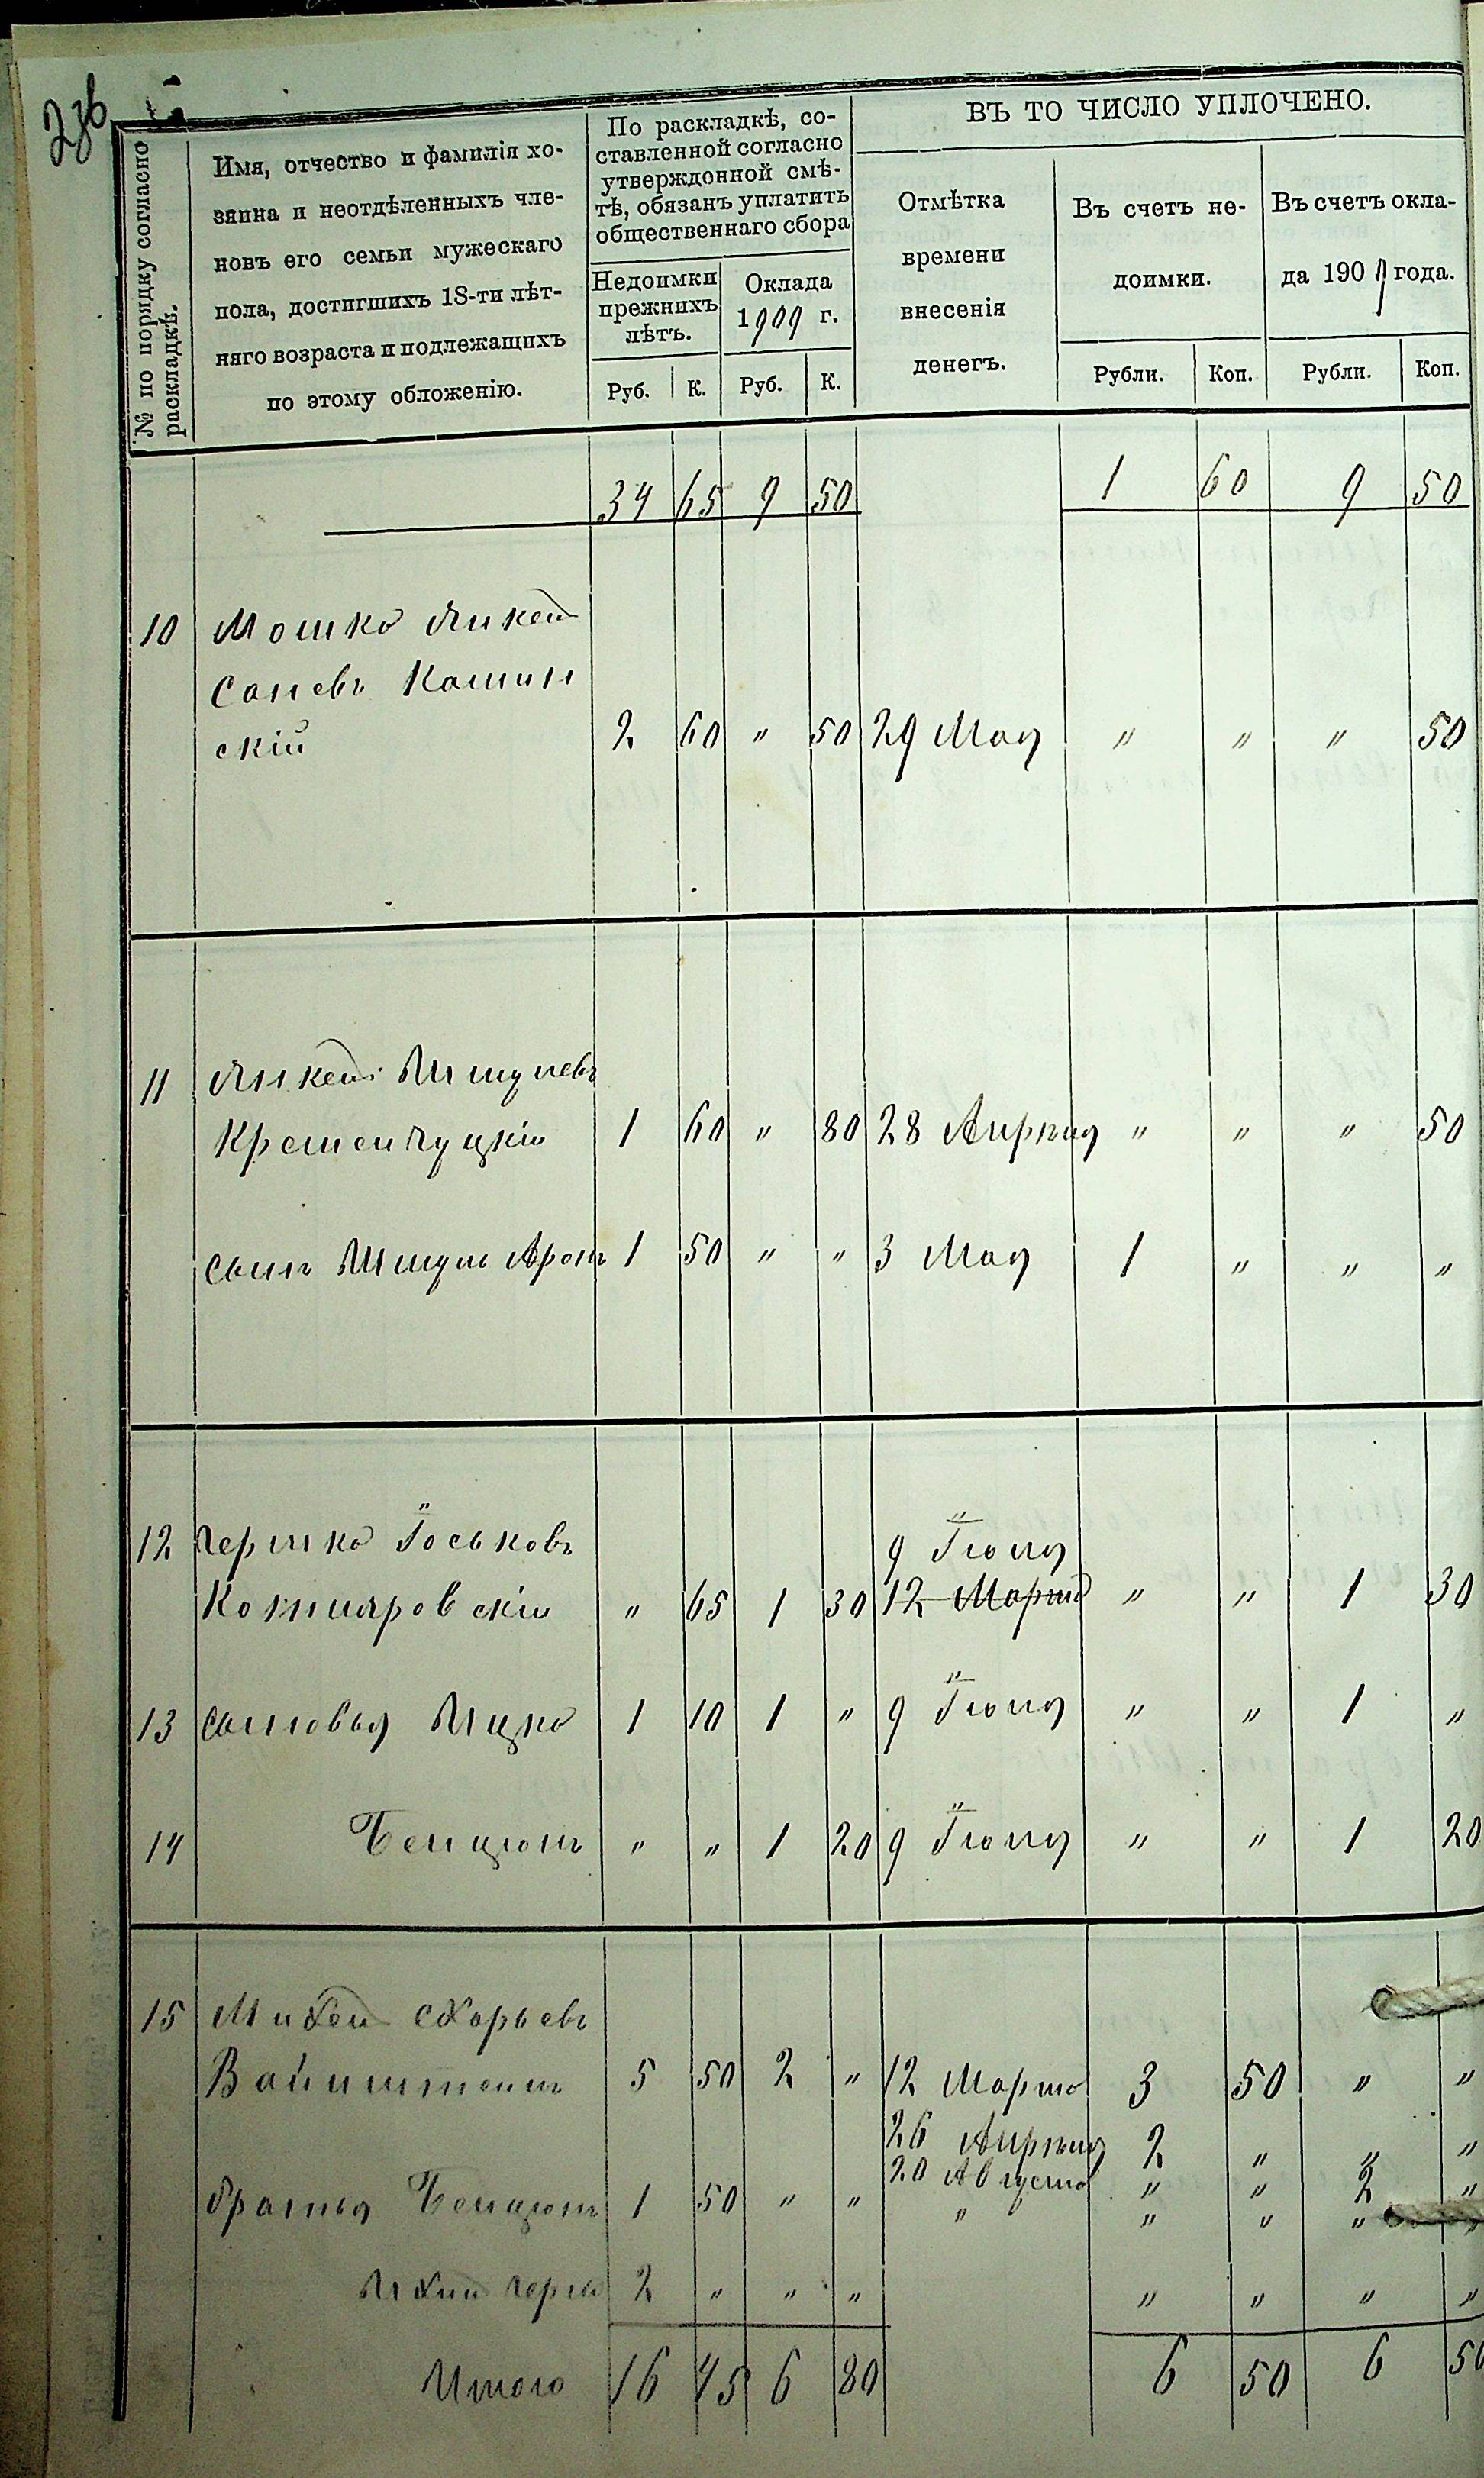 236
№ по порядку согласно раскладкѣ.
Имя, отчество и фамилія хо-
зяина и неотдѣленныхъ чле-
новъ его семьи мужескаго
пола, достигшихъ 18-ти лѣт-
няго возраста и подлежащихъ
по этому обложенію.
По раскладкѣ, со-
ставленной согласно
утвержденной смѣ-
тѣ, обязанъ уплатить
общественнаго сбора
Недоимки
прежнихъ
лѣтъ.
Оклада
1909 г.
Руб. К. Руб. К.
ВЪ ТО ЧИСЛО УПЛОЧЕНО.
Отмѣтка
времени
внесенія
денегъ.
Въ счетъ не-
доимки.
Рубли. Коп.
Въ счетъ окла-
да 1909 года.
Рубли. Коп.
34 65 9 50 1 60 9 50
10 Мошко Янкел
скій 2 60 " 50 29 Мая " " " 50
11 Янкель Шмулевъ
Кременчуцкій 1 60 " 80 28 Апрѣля " " " 50
сынъ Шмуль Аронъ 1 50 " " 3 Мая 1 " " "
12 Гершко Іоськовъ 9 Іюня
Котляровскій " 65 1 30 12 Марта " " 1 30
13 сыновья Ицко 1 10 1 " 9 Іюня " " 1 "
14 Бенціонъ " " 1 20 9 Іюня " " 1 20
15 Михел Схарьевъ
Вайнштейнъ 5 50 2 " 12 Марта 3 50 " "
26 Апрѣля 2 " " "
20 Августа " " 2 "
братья Бенціонъ 1 50 " " " " " " "
Герш 2 " " " " " " "
Итого 16 45 6 80 6 50 6 50